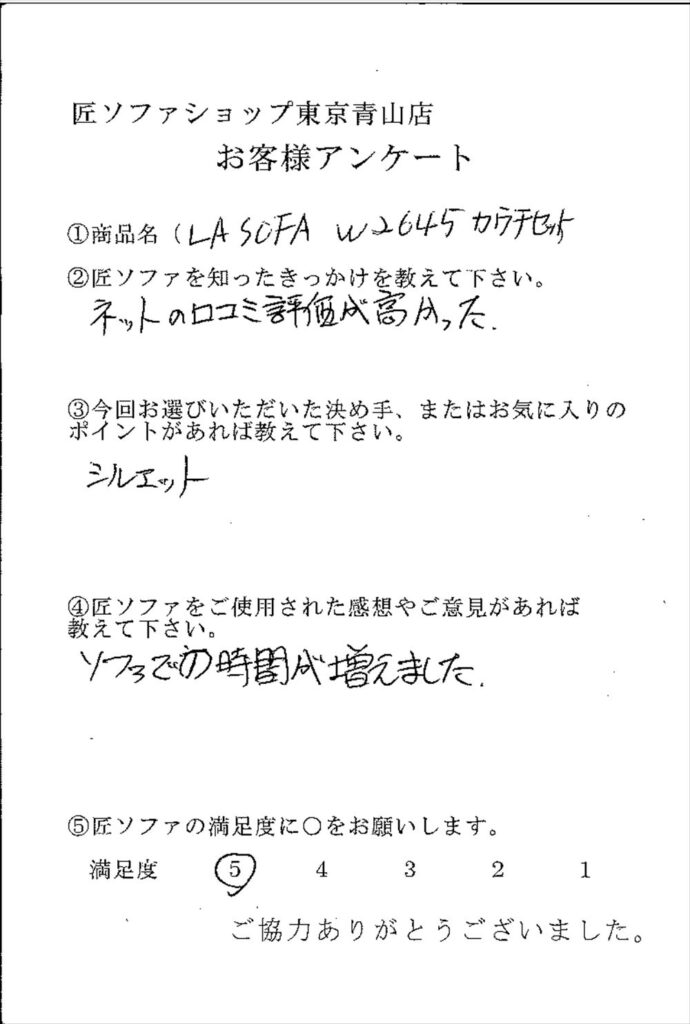 匠ソファショップ東京青山店
お客様アンケート
①商品名（LA SOFA W2645 カウチセット
②匠ソファを知ったきっかけを教えて下さい。
ネットの口コミ評価が高かった.
③今回お選びいただいた決め手、またはお気に入りの
ポイントがあれば教えて下さい。
シルエット
④匠ソファをご使用された感想やご意見があれば
教えて下さい。
ソファでの時間が増えました.
⑤匠ソファの満足度に○をお願いします。
満足度 5 4 3 2 1
ご協力ありがとうございました。